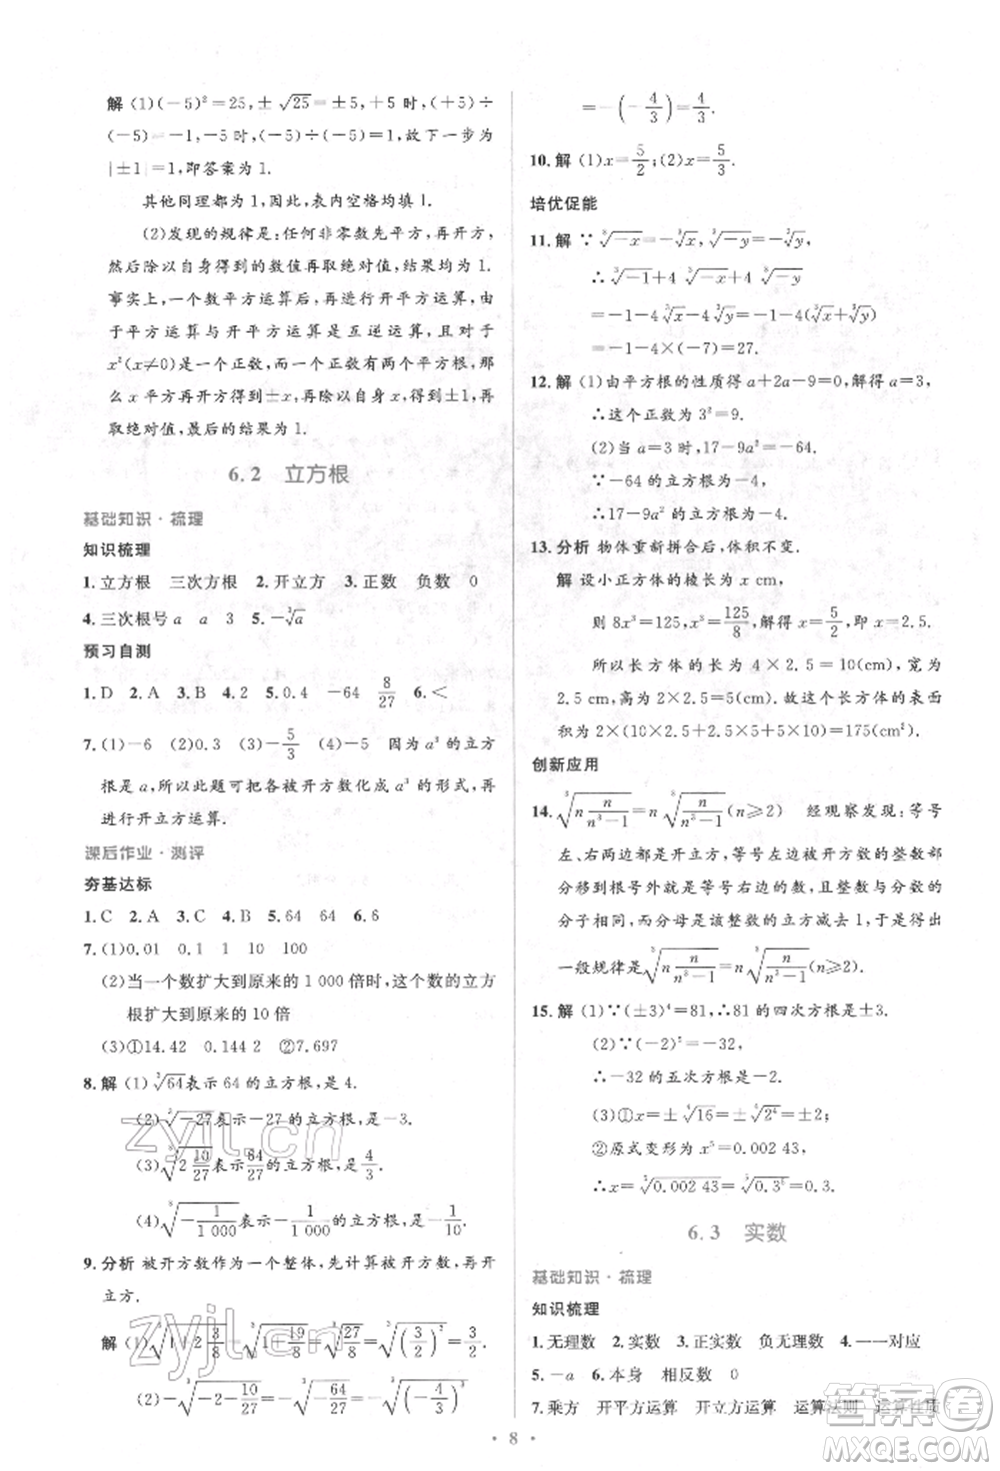 解 (1)(−5)²=25,±√25=±5,+5时,(+5)÷
(−5)=−1,−5时,(−5)÷(−5)=1,故下一步为
|±1|=1,即答案为1.
其他同理都为1,因此,表内空格均填1.
(2)发现的规律是:任何非零数先平方,再开方,
然后除以自身得到的数值再取绝对值,结果均为1.
事实上,一个数平方运算后,再进行开平方运算,由
于平方运算与开平方运算是互逆运算,而且对于
x²(x≠0)是一个正数,一个正数有两个平方根,那
么x平方再开方得到±x,再除以自身得到±1,再
取绝对值,得到的结果为1.
6.2 立方根
基础知识·梳理
知识梳理
1.立方根 三次方根 2.开立方 3.正数 负数 0
4.三次根号a a 3 5.−∛a
预习自测
1.D 2.A 3.B 4.2 5.0.4 −64 8/27 6.<
7.(1)−6 (2)0.3 (3)−5/3 (4)−10 因为a³的立方
根是a,所以此题可把各被开方数化成a³的形式,再
进行开立方运算.
课后作业·测评
夯基达标
1.C 2.A 3.C 4.B 5.64 64 6.6
7.(1)0.01 0.1 1 10 100
(2)当一个数扩大到原来的1 000倍时,这个数的立方
根扩大到原来的10倍
(3)①14.42 0.144 2 ②7.697
8.解 (1)∛64表示64的立方根,是4.
(2)∛−27表示−27的立方根,是−3.
(3)∛(2 10/27)表示64/27的立方根,是4/3.
(4)∛(−1/1 000)表示−1/1 000的立方根,是−1/10.
9.分析 被开方数作为一个整体,先计算被开方数,再开
立方.
解 (1)
(2)∛(−2−10/27)=∛(−64/27)=∛(−4/3)³
=−(−4/3)=4/3.
10.解 (1)x=5/2;(2)x=5/3.
培优促能
11.解 ∵∛−x=−∛x,∛−y=−∛y,
∴∛−1+4∛−x+4∛−y
=−1−4∛x−4∛y=−1−4(∛x+∛y)
=−1−4×(−7)=27.
12.解 (1)由平方根的性质得a+2a−9=0,解得a=3,
∴这个正数为3²=9.
(2)当a=3时,17−9a²=−64,
∵−64的立方根为−4,
∴17−9a²的立方根为−4.
13.分析 物体重新拼合后,体积不变.
解 设小正方体的棱长为x cm,
则8x³=5×5×5,x³=125/8,x=5/2,即x=2.5.
所以长方体的长为4×2.5=10(cm),宽为
2.5 cm,高为2×2.5=5(cm).故这个长方体的表面
积为2×(10×2.5+10×5+2.5×5)=175(cm²).
创新应用
14.∛(n n/(n³−1))=n∛(n/(n³−1))(n≥2) 经观察发现:等号
左、右两边都是开立方,等号左边被开方数的整数部
分移到根号外就是等号右边的数,整数与分数的
分子相同,而分母是该整数的立方减去1,于是得出
一般规律是∛(n n/(n³−1))=n∛(n/(n³−1))(n≥2).
15.解 (1)∵(±3)⁴=81,∴81的四次方根是±3.
(2)∵(−2)⁵=−32,
∴−32的五次方根是−2.
(3)①x=±⁴√16=±⁴√2⁴=±2;
②原式变形为x⁵=0.002 43,
∴x=⁵√0.002 43=⁵√0.3⁵=0.3.
6.3 实数
基础知识·梳理
知识梳理
1.无理数 2.实数 3.正实数 负无理数 4.一一对应
5.−a 6.本身 相反数 0
7.乘方 开平方运算 开立方运算 运算法则 运算性质
· 8 ·
zyjl.cn
zyjl.cn
答案圈
MXQE.COM